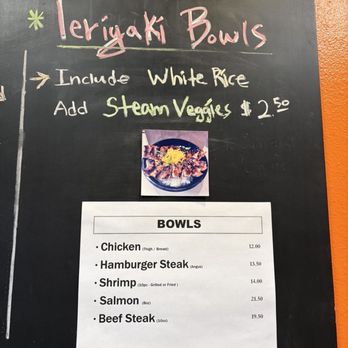 * Teriyaki Bowls
→ Include White Rice
Add Steam Veggies $2.50
BOWLS
· Chicken (Thigh / Breast) 12.00
· Hamburger Steak (Angus) 13.50
· Shrimp (10pc - Grilled or Fried) 14.00
· Salmon (8oz) 21.50
· Beef Steak (10oz) 19.50